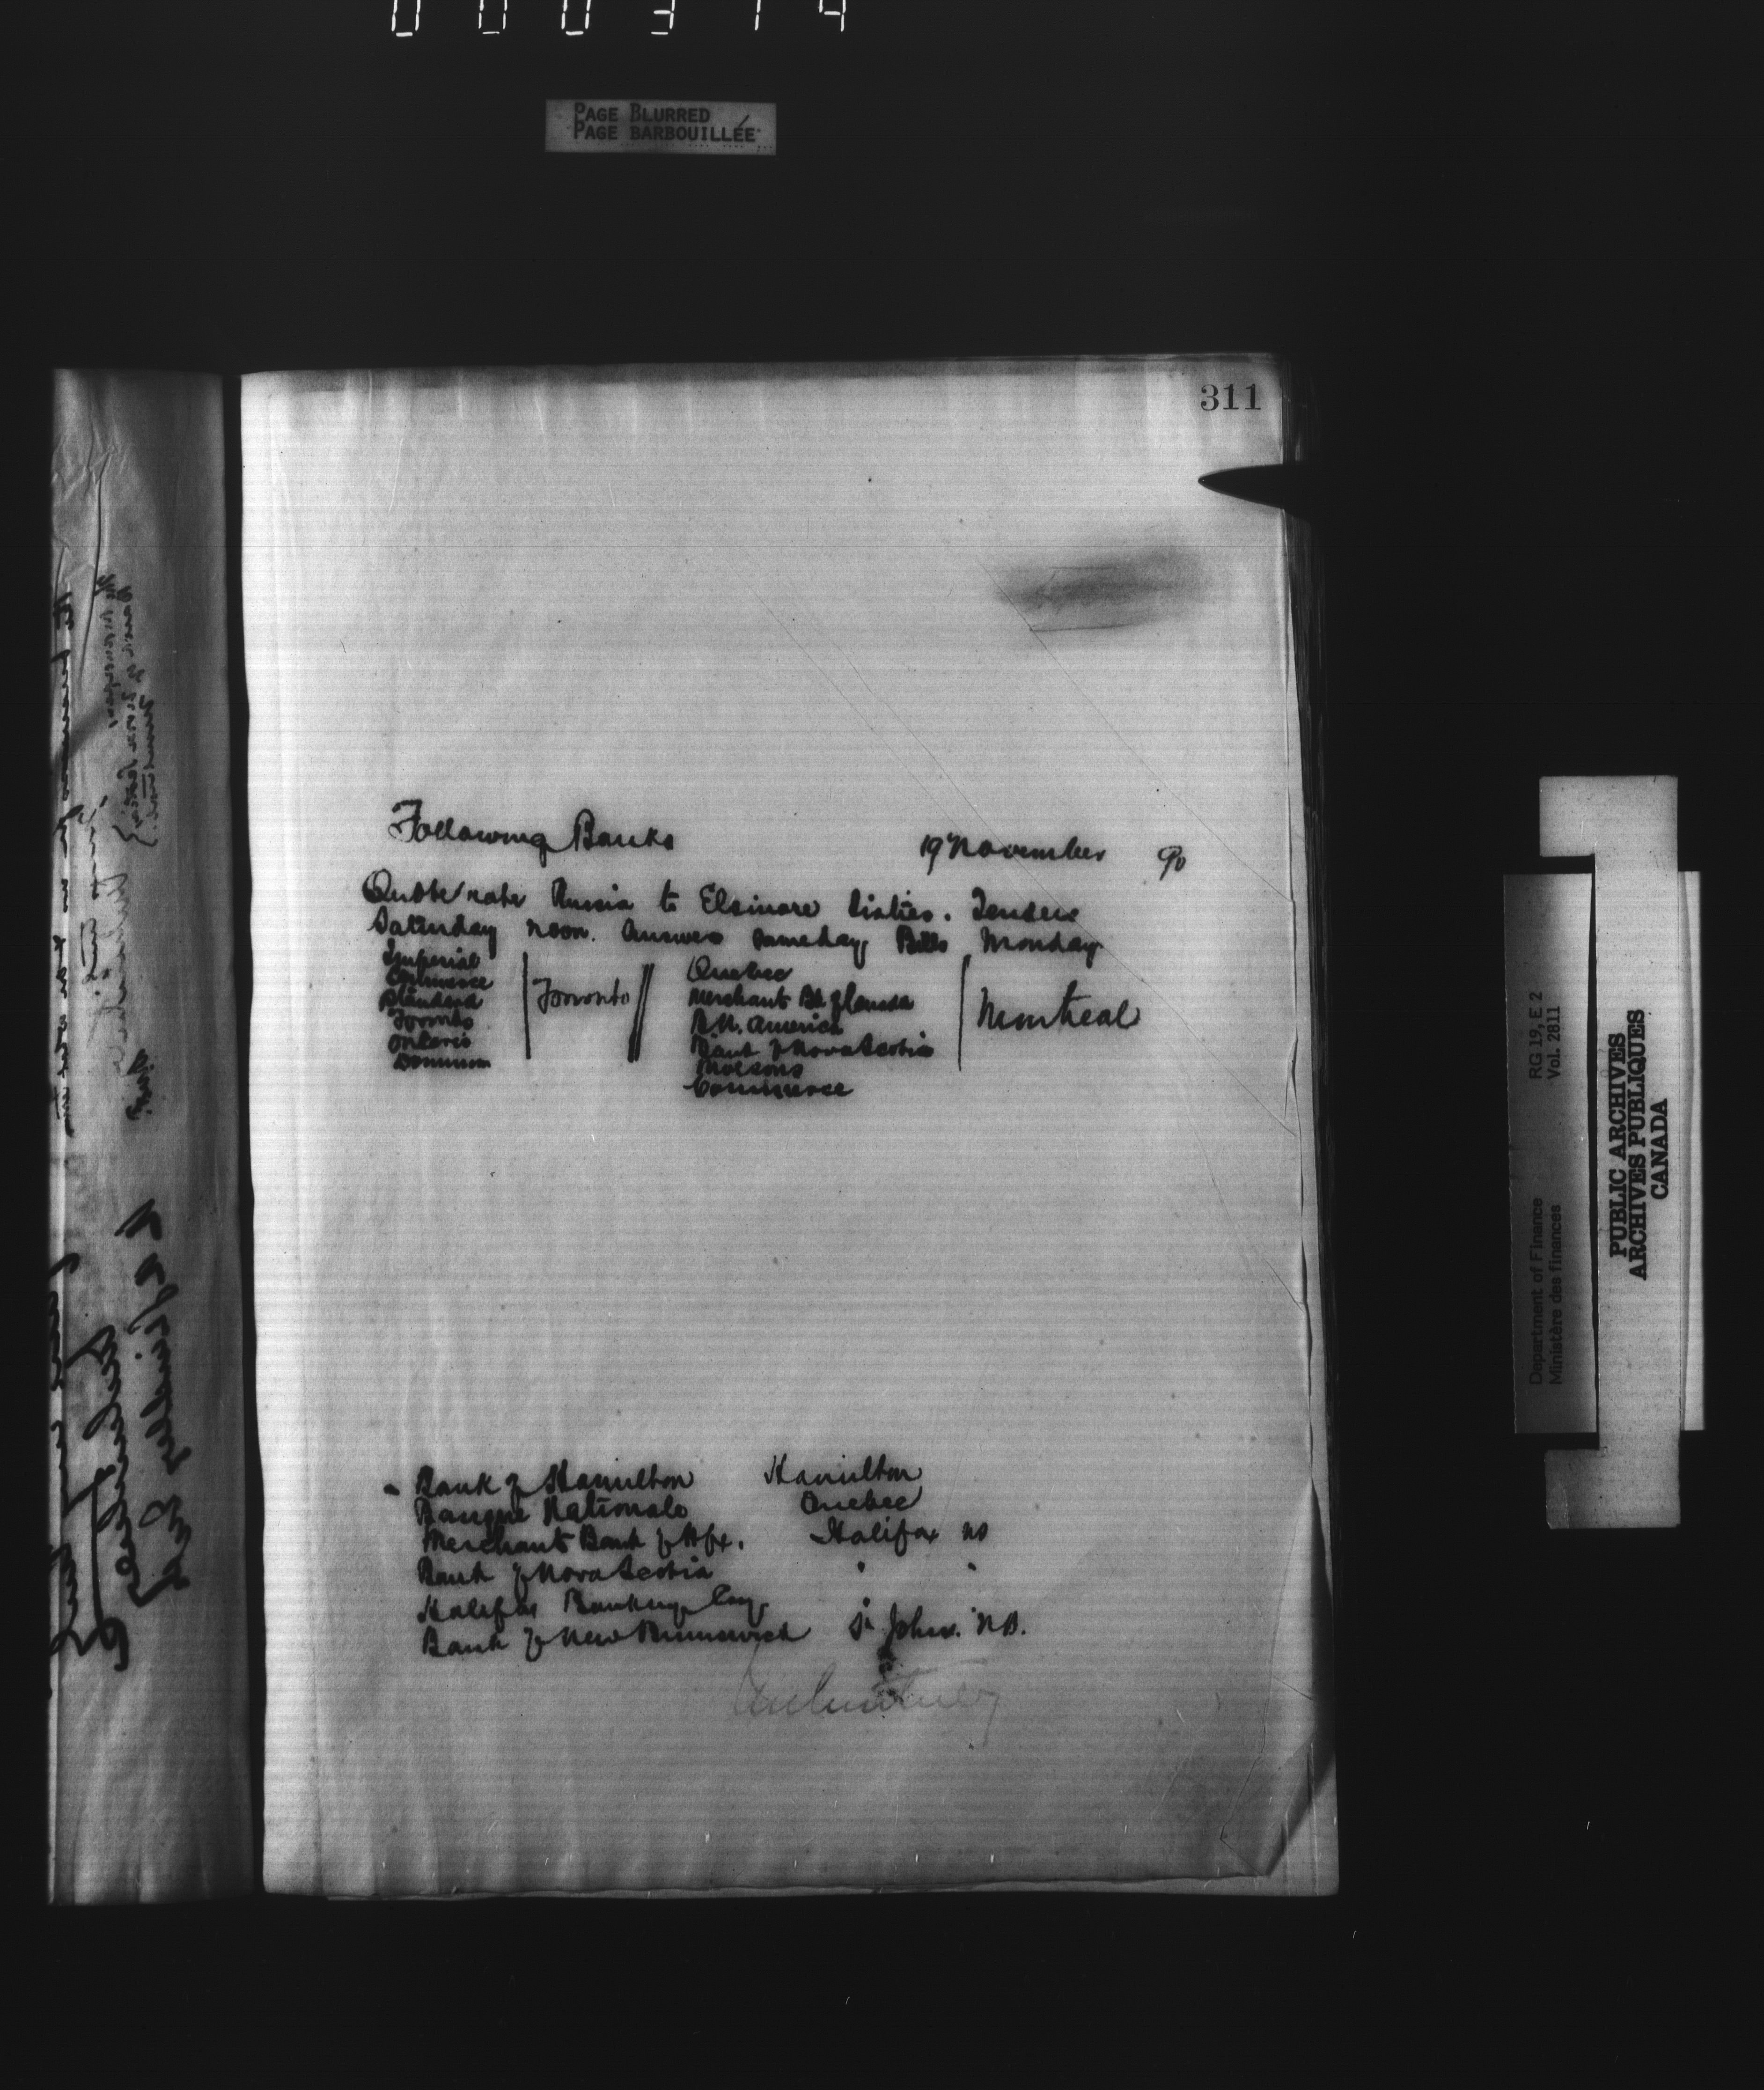 000314
PAGE BLURRED
PAGE BARBOUILLÉE
311
Following Banks 19 November 90
Quote rate Russia to Elsinore sixties. Tenders
Saturday noon. Answer sameday Bills Monday
Imperial
Commerce
Standard
Toronto
Ontario
Dominion
Toronto
Quebec
Merchants Bk of Canada
B.N. America
Bank of Nova Scotia
Molsons
Commerce
Montreal
Bank of Hamilton Hamilton
Banque Nationale Quebec
Merchants Bank of Hfx. Halifax NS
Bank of Nova Scotia " "
Halifax Banking Coy. "
Bank of New Brunswick St John. NB.
RG 19, E 2
Vol. 2811
Department of Finance
Ministère des finances
PUBLIC ARCHIVES
ARCHIVES PUBLIQUES
CANADA